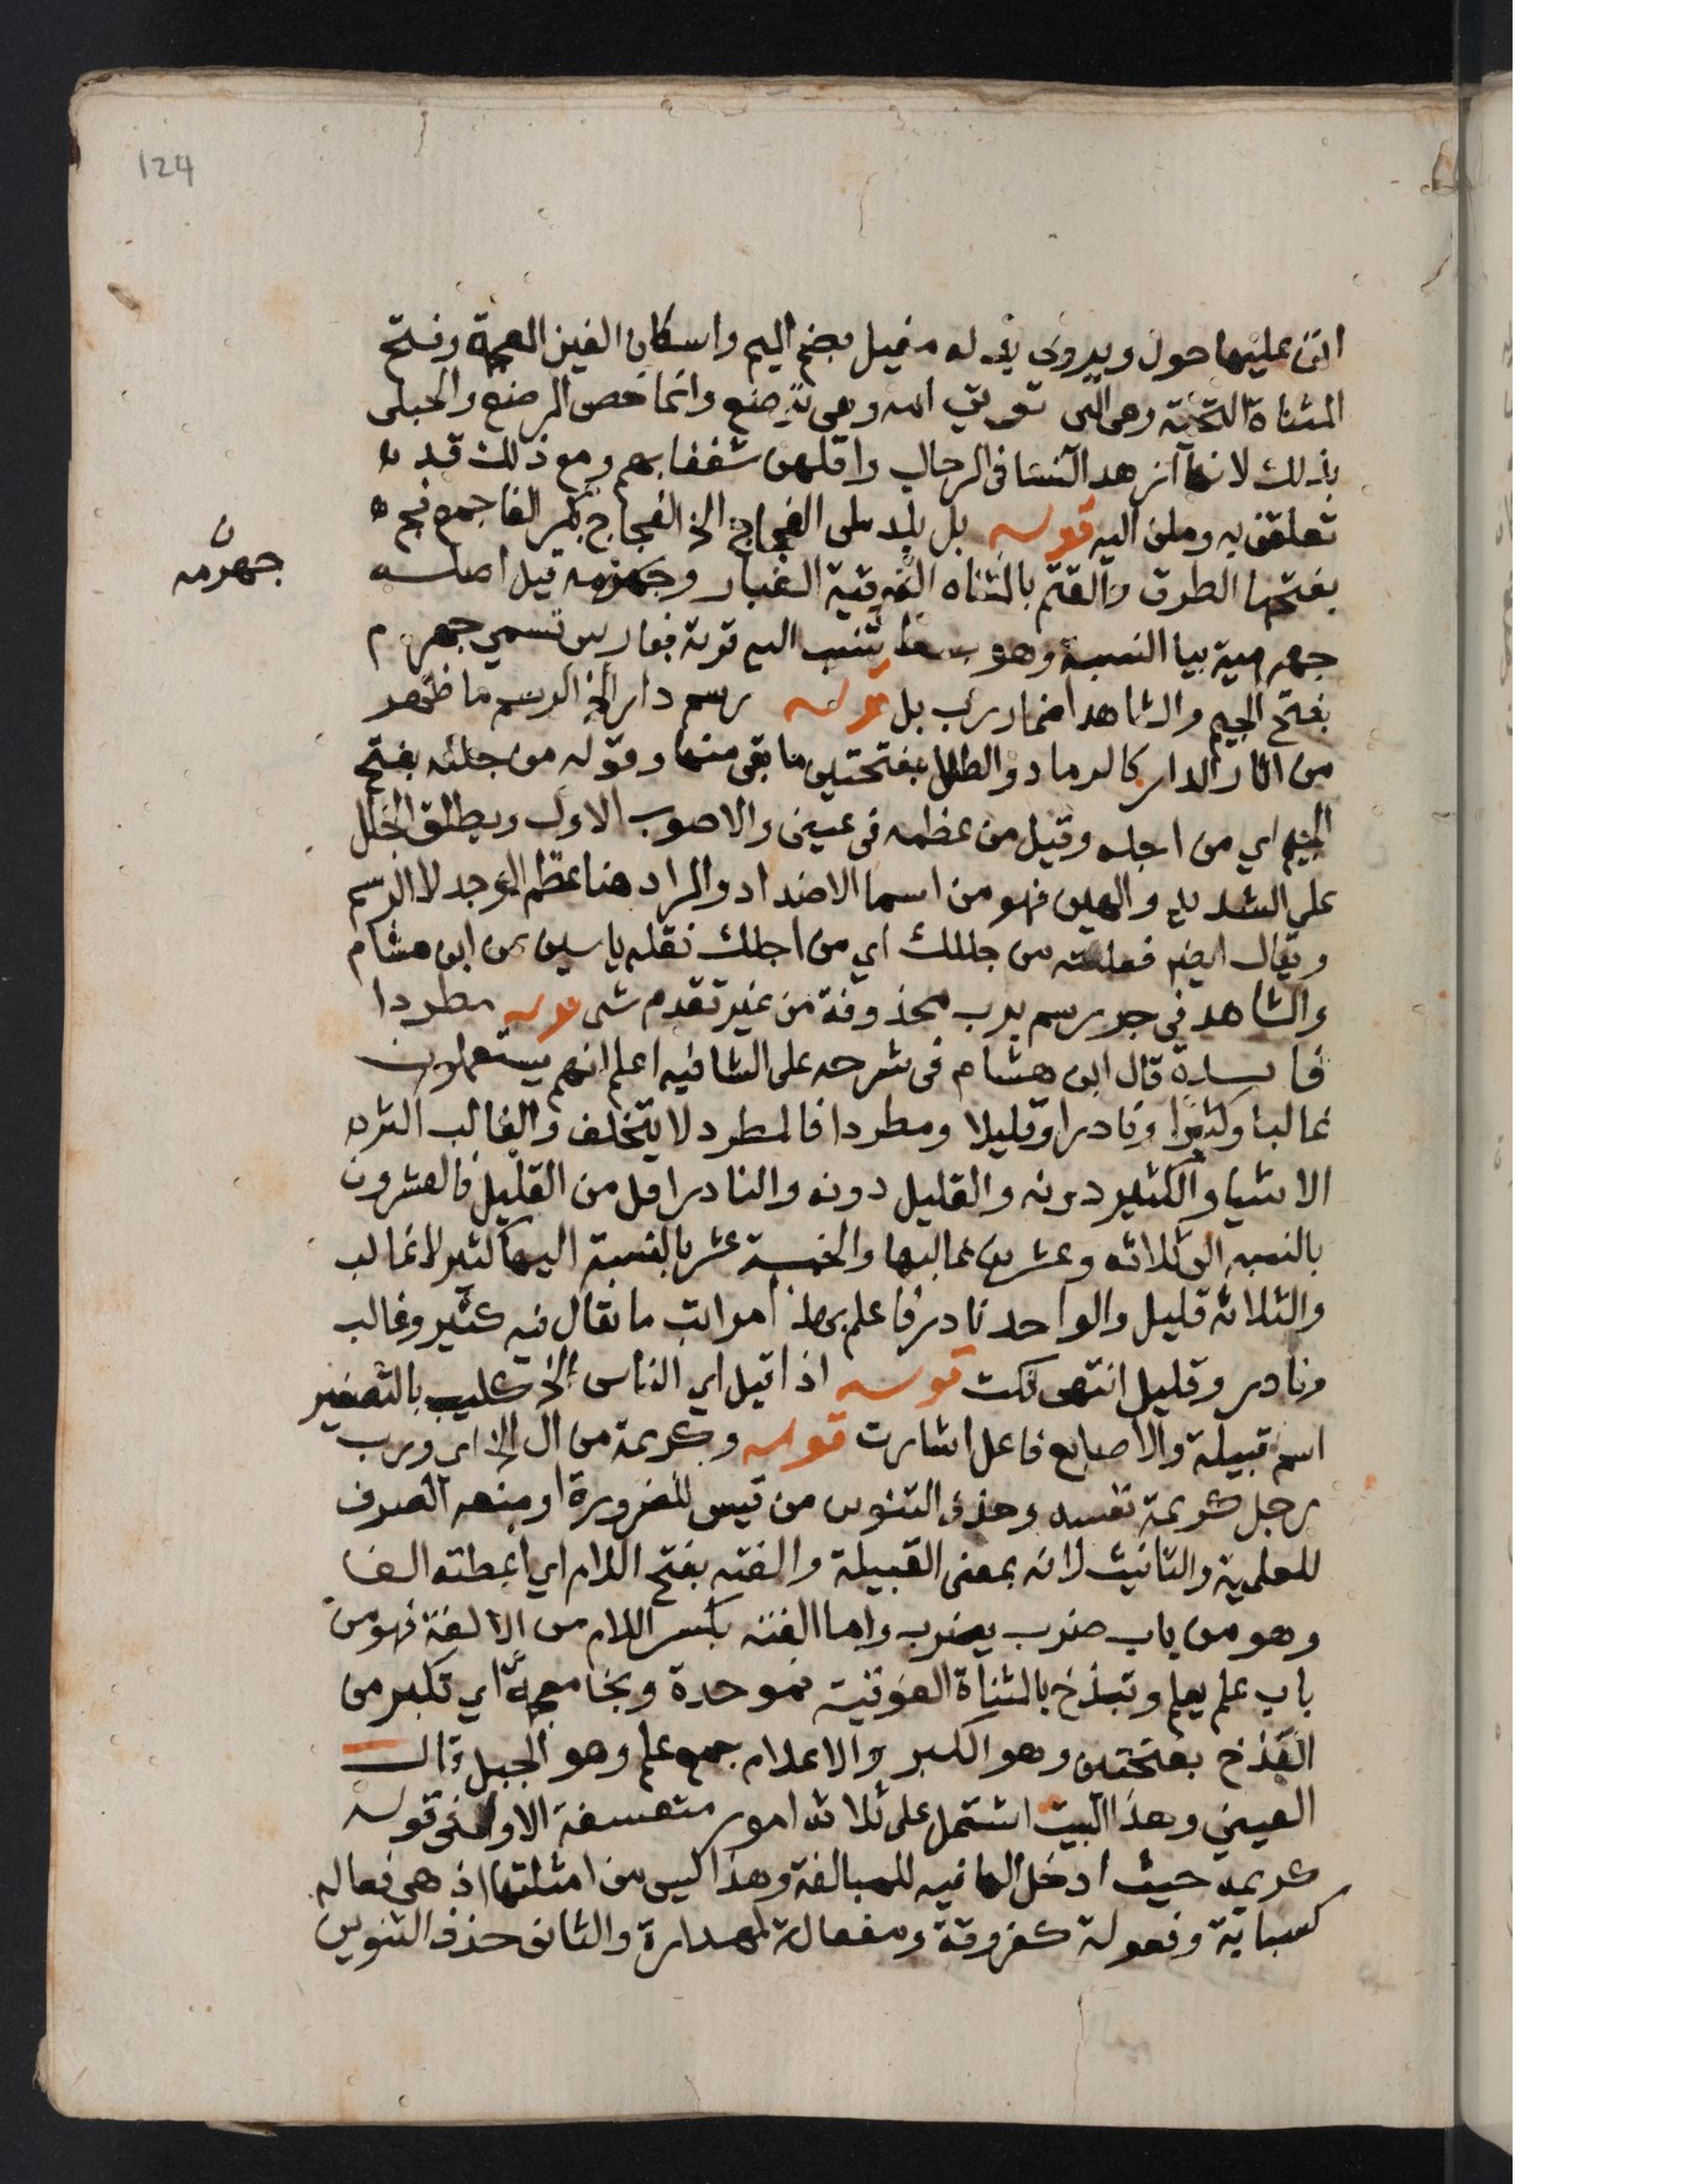 124
اتى عليها حول ويروى بدله مغيل بضم الميم واسكان الغين المعجمة وفتح
المثناة التحتية وهى التى تؤتى امه وهى ترضع وانما خص المرضع والحبلى
بذلك لانهما ازهد النسا فى الرجال واقلهن شغفا بهم ومع ذلك قد
تعلقن به وملن اليه قوله بل بلد ملى الفجاج الخ الفجاج بكسر الفا جمع فج
بفتحها الطرق والقتم بالمثناه الفوقية الغبار وجهرمه قيل اصله
جهرمية بيا النسبة وهو بسط تنسب الى قرية بفارس تسمي جهرم
جهرمه ن
بفتح الجيم والشاهد اضمار رب بل قوله رسم دار الخ الرسم ما ظهر
من اثار الدار كالرماد والطلل بفتحتين ما بقى منها وقوله من جلله بفتح
الجيم اي من اجله وقيل من عظمه فى عينى والاصوب الاول ويطلق الجلل
على الشديد والهين فهو من اسما الاضداد والمراد هنا عظم الوجد لا الرسم
ويقال ايضا فعلته من جللك اي من اجلك نقله ياسين عن ابن هشام
والشاهد فى جر رسم برب محذوفة من غير تقدم شى قوله مطردا
فايدة قال ابن هشام فى شرحه على الشافيه اعلم انهم يستعملون
غالبا وكثيرا ونادرا وقليلا ومطردا فالمطرد لا يتخلف والغالب اكثره
الاشيا والكثير دونه والقليل دونه والنادر اقل من القليل فالعشرون
بالنسبه الى ثلاثه وعشرين غالبها والخمسة عشر بالنسبة اليها كثير لا غالب
والثلاثه قليل والواحد نادر فاعلم بهذا مراتب ما يقال فيه كثير وغالب
ونادر وقليل انتهى نكت قوله اذا قيل اي الناس الخ كليب بالتصغير
اسم قبيلة والاصابع فاعل اشارت قوله وكريمة من ال الخ اي ورب
رجل كريمة نفسه وحذف التنوين من قيس للضرورة او منعه الصرف
للعلمية والتانيث لانه بمعنى القبيلة والفته بفتح اللام اي اعطته الفا
وهو من باب ضرب يضرب واما الفته بكسر اللام من الالفة فهو من
باب علم يعلم وتبذخ بالمثناة الفوقية فموحدة وبخا معجمة اي تكبر من
البذخ بفتحتين وهو الكبر والاعلام جمع علم وهو الجبل قال
العيني وهذا البيت اشتمل على ثلاثه امور متعسفة الاول فى قوله
كريمة حيث ادخل الها فيه للمبالغة وهذا ليس من امثلتها اذ هى فعاله
كسبابة وفعولة كفروقة ومفعالة كمهدارة والثانى حذف التنوين